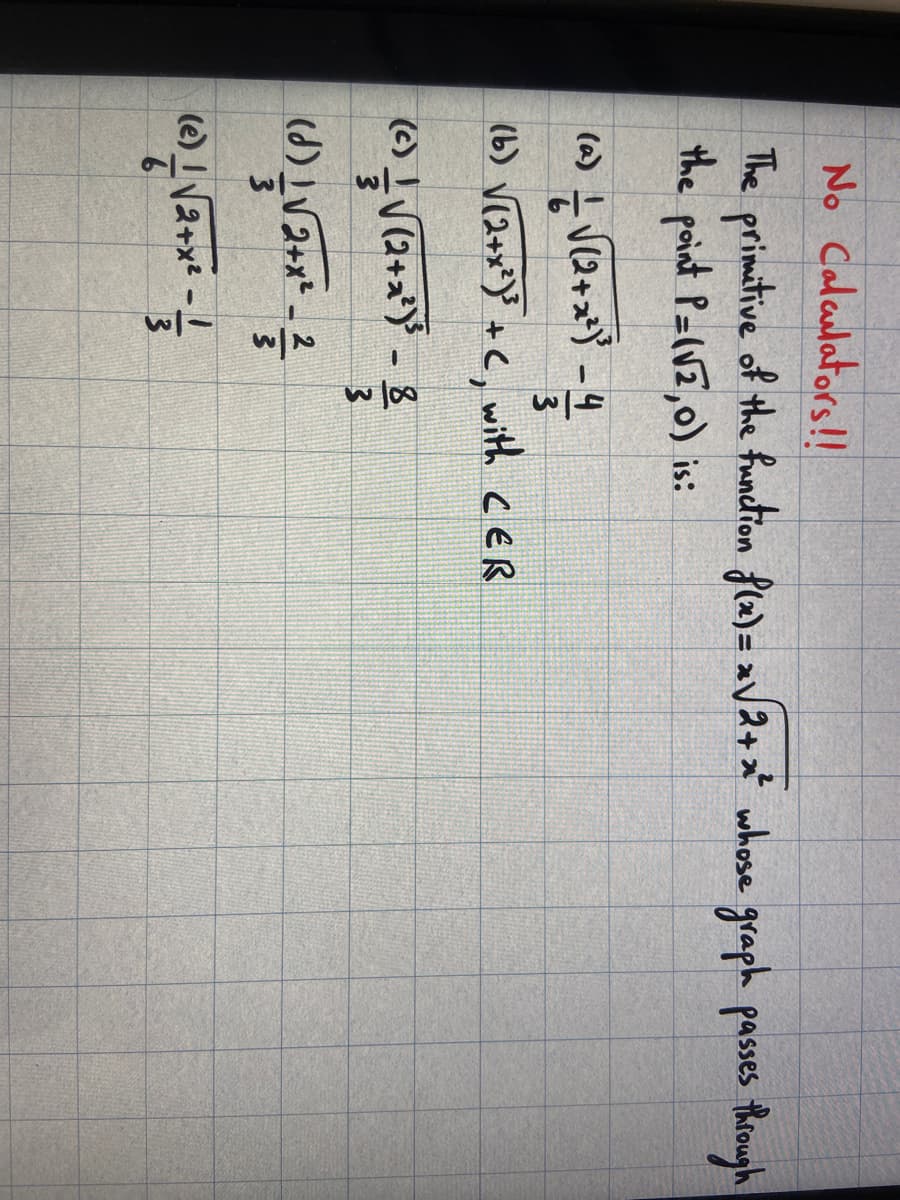 No Calculators!!
The primitive of the function f(x) = x√(2+x²) whose graph passes through
the point P=(√2,0) is:
(a) 1/6 √((2+x²)³) - 4/3
(b) √((2+x²)³) + C, with C ∈ R
(c) 1/3 √((2+x²)³) - 8/3
(d) 1/3 √(2+x²) - 2/3
(e) 1/6 √(2+x²) - 1/3